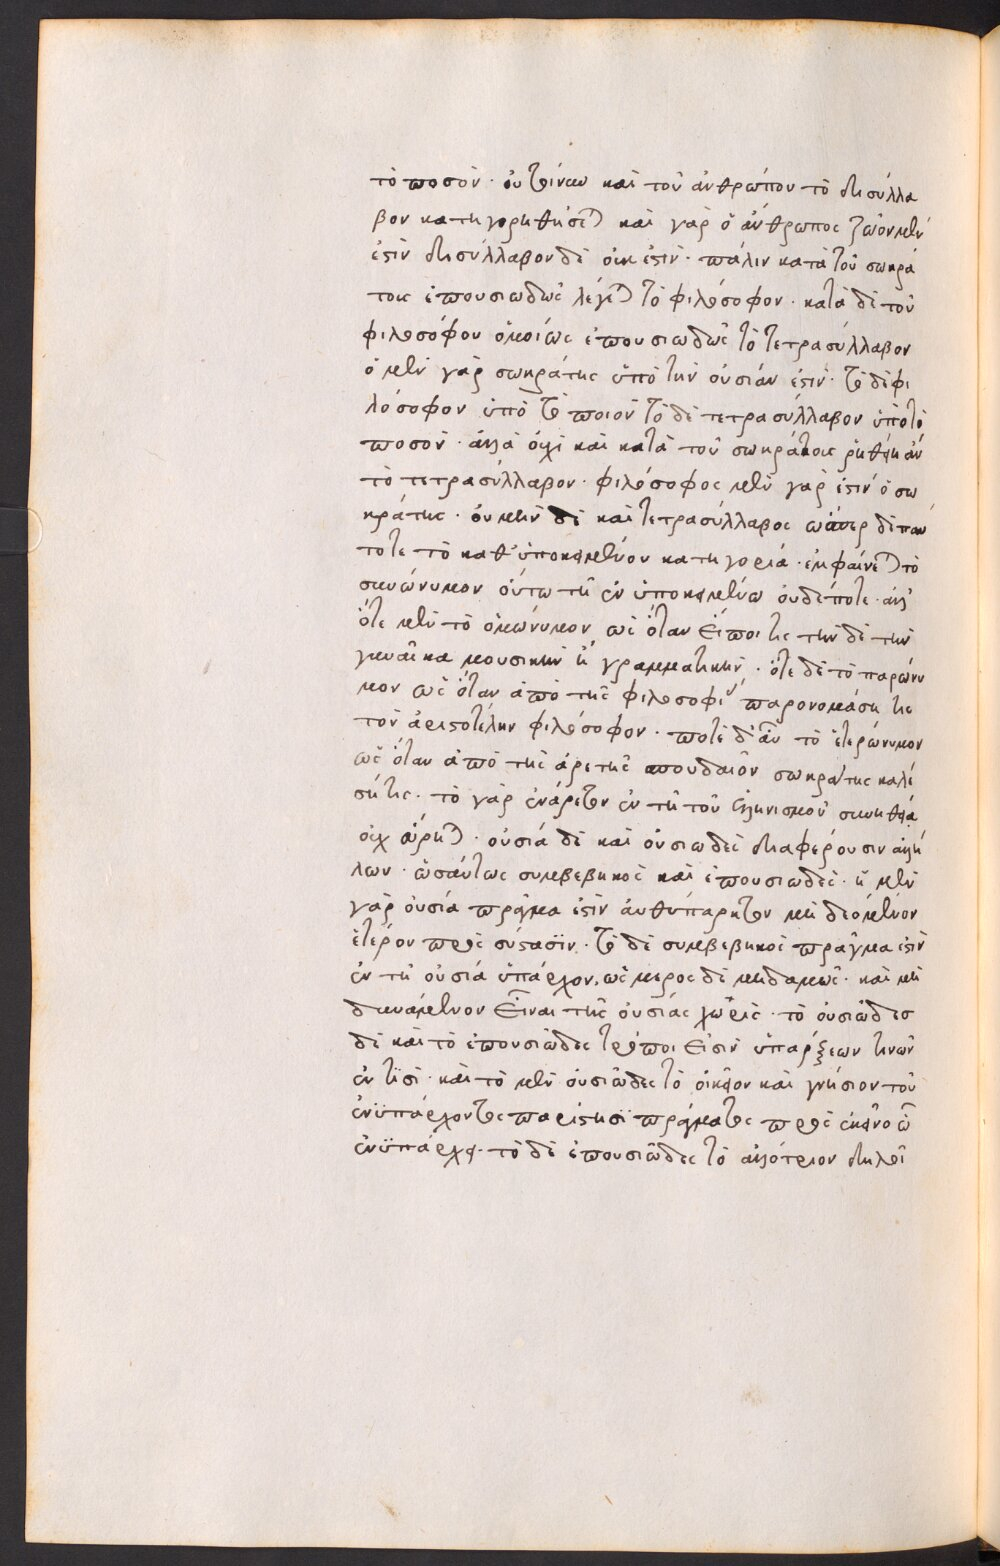 τὸ ποσὸν· οὐ τοίνυν καὶ τοῦ ἀνθρώπου τὸ δισύλλα
βον κατηγορηθήσεται καὶ γὰρ ὁ ἄνθρωπος ζῶον μέν
ἐστὶν δισύλλαβον δὲ οὐκ ἐστὶν· πάλιν κατὰ τοῦ σωκρά
τους ἐπουσιωδῶς λέγεται τὸ φιλόσοφον· κατὰ δὲ τοῦ
φιλοσόφου ὁμοίως ἐπουσιωδῶς τὸ τετρασύλλαβον
ὁ μὲν γὰρ σωκράτης ὑπὸ τὴν οὐσίαν ἐστὶν· τὸ δὲ φι
λόσοφον ὑπὸ τὸ ποιὸν τὸ δὲ τετρασύλλαβον ὑπὸ τὸ
ποσὸν· ἀλλὰ οὐχὶ καὶ κατὰ τοῦ σωκράτους ῥηθείη ἂν
τὸ τετρασύλλαβον· φιλόσοφος μὲν γὰρ ἐστὶν ὁ σω
κράτης· οὐ μὴν δὲ καὶ τετρασύλλαβος ὥσπερ δὲ παν
τοτε τὸ καθ' ὑποκειμένου κατηγορία· ἐμφαίνεται τὸ
συνώνυμον οὕτω τῆ ἐν ὑποκειμένω οὐδέποτε· ἀλλ'
ὁτὲ μὲν τὸ ὁμώνυμον ὡς ὅταν εἴποι τις τὴν δὲ τὴν
γυναῖκα μουσικὴν ἢ γραμματικήν· ὁτὲ δὲ τὸ παρώνυ
μον ὡς ὅταν ἀπὸ τῆς φιλοσοφίας παρονομάση τις
τὸν ἀριστοτέλην φιλόσοφον· ποτὲ δ' αὖ τὸ ἑτερώνυμον
ὡς ὅταν ἀπὸ τῆς ἀρετῆς σπουδαῖον σωκράτης καλέ
ση τις· τὸ γὰρ ἐνάρετον ἐν τῆ τοῦ ἑλληνισμοῦ συνηθεία
οὐχ εὕρηται· οὐσία δὲ καὶ οὐσιῶδες διαφέρουσιν ἀλλή
λων· ὡσαύτως συμβεβηκὸς καὶ ἐπουσιῶδες· ἡ μὲν
γὰρ οὐσία πρᾶγμα ἐστὶν αὐθύπαρκτον μὴ δεόμενον
ἑτέρου πρὸς σύστασϊν· τὸ δὲ συμβεβηκὸς πρᾶγμα ἐστὶν
ἐν τῆ οὐσία ὑπάρχον, ὡς μέρος δὲ μηδαμῶς· καὶ μὴ
δυνάμενον εἶναι τῆς οὐσίας χωρὶς· τὸ οὐσιῶδες
δὲ καὶ τὸ ἐπουσιῶδες τρόποι εἰσὶν ὑπάρξεων τινῶν
ἐν τισὶ· καὶ τὸ μὲν οὐσιῶδες τὸ οἰκεῖον καὶ γνήσιον τοῦ
ἐνϋπάρχοντος παρίστησϊ πράγματος πρὸς ἐκεῖνο ὧ
ἐνϋπάρχει· τὸ δὲ ἐπουσιῶδες τὸ ἀλλότριον δηλοῖ